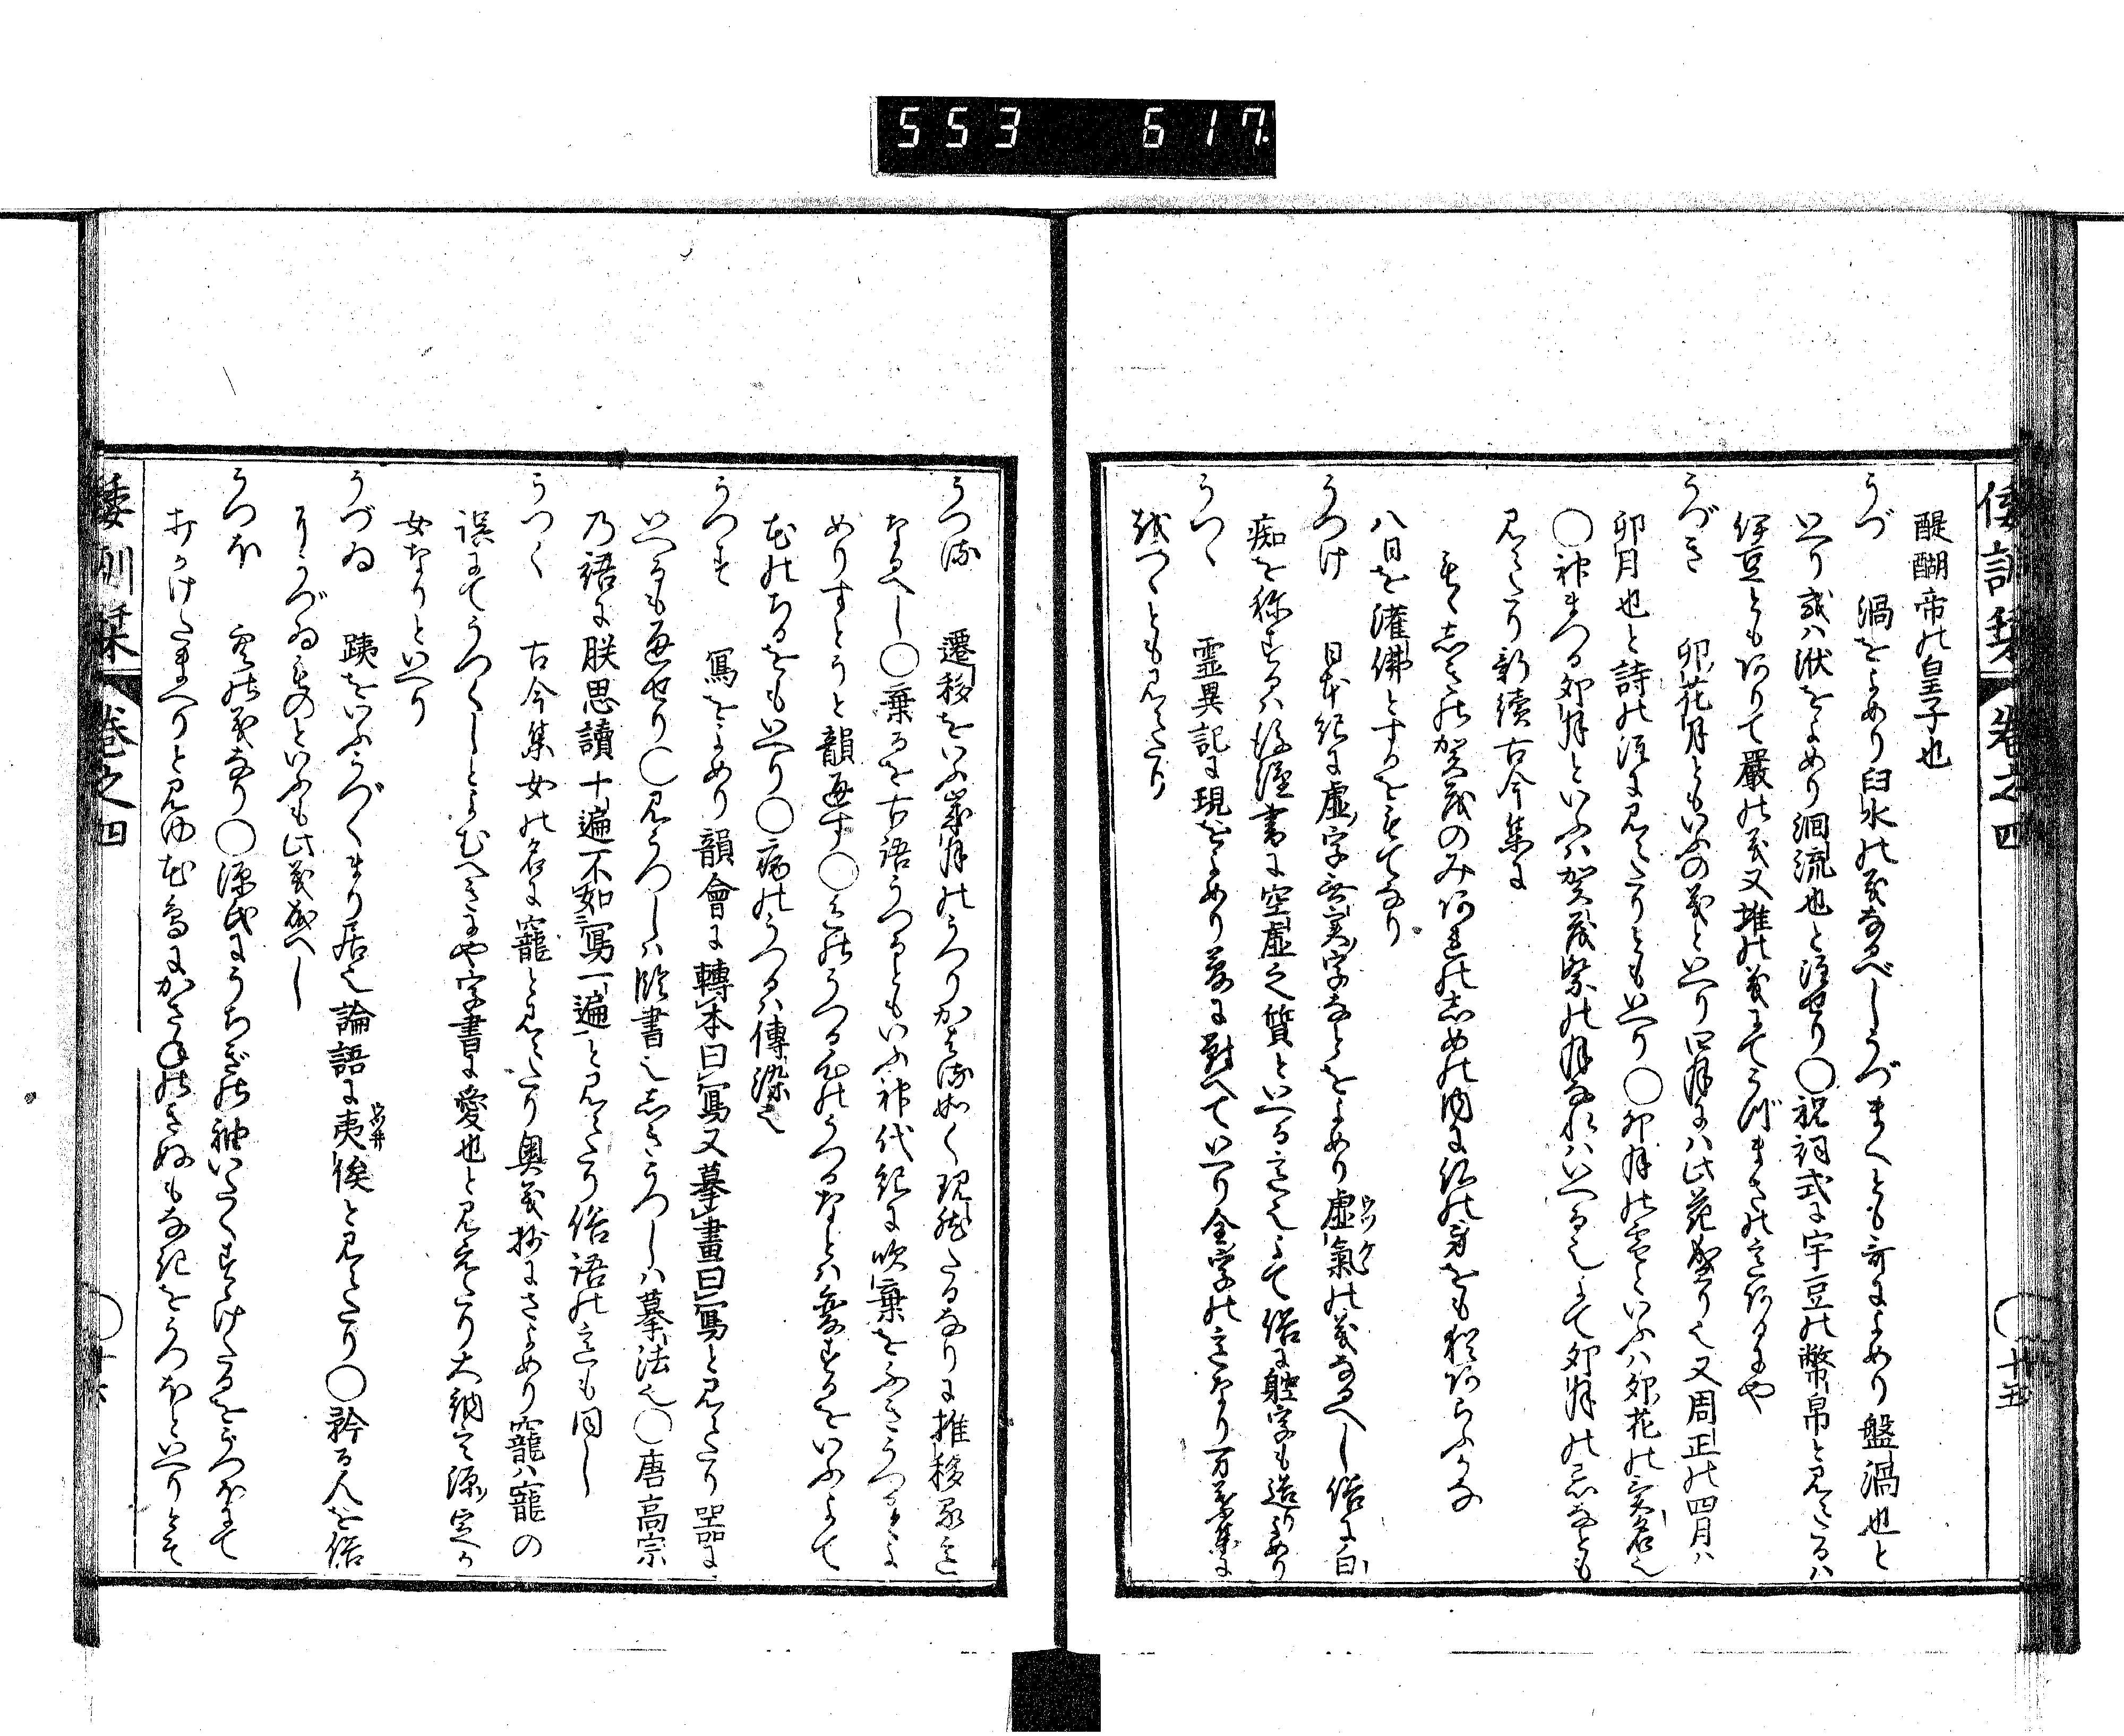 553 617
倭訓栞 巻之四 〇 廿五
醍醐帝の皇子也
うづ 渦をよめり臼水の義なるべしうづまくとも哥によめり盤渦也と
いへり或ハ洑をよめり洄流也と注せり〇祝詞式に宇豆の幣帛と見えたるハ
伊豆ともありて嚴の義又堆の義にてうづまさの意あるにや
うづき 卯花月ともいふの義といへり四月にハ此花盛り也又周正の四月ハ
卯月也と詩の注に見えたりともいへり〇卯月の雪といふハ卯花の実名也
〇神まつる卯月といふハ賀茂祭の月なれハいへる也よて卯月の忌なとも
見えたり新續古今集に
志めの内に
八日を灌佛とするをもてなり
うつけ 日本紀に虚字無実字なとをよめり虚氣の義なるへし俗に白
痴を称するハ淫書に空虚之質といへる意也よて俗に躻字も造りよめり
うつゝ 霊異記に現をよめり夢に對へていへり全字の意なり万葉集に
うつゝとも見えたり
うつる 遷移をいふ歳月のうつりかはる如く現然たるなりに推移る意
なるへし〇棄るを古語うつるともいふ神代紀に吹棄をふきうつるとよ
めりすとうと韻通す〇花のうつる色のうつるなとハ変するをいふよて
花のちるをもいへり〇病のうつるハ傳染也
うつす 寫をよめり韻會に轉本曰寫又摹畫曰寫と見えたり器に
いへるも通せり〇見うつしハ臨書也しきうつしハ摹法也〇唐高宗
乃語に朕思讀十遍不如寫一遍と見えたり俗語の意も同し
うつく 古今集女の名に寵と見えたり奥義抄にさよめり寵ハ寵の
誤にてうつくしとよむへきにや字書に愛也と見えたり大納言源定か
女なりといへり
うづゐ 踑をいふうづくまり居也論語に夷俟と見えたり〇矜る人を俗
にうづゐものといふも此義成へし
うつほ 空の義なり〇源氏にうちぎの袖いたくすゝけたるをうつほにて
打かけたまへりと見ゆ花鳥にかさねのきぬもなきをうつほといへりとそ
倭訓栞 巻之四 〇 廿六